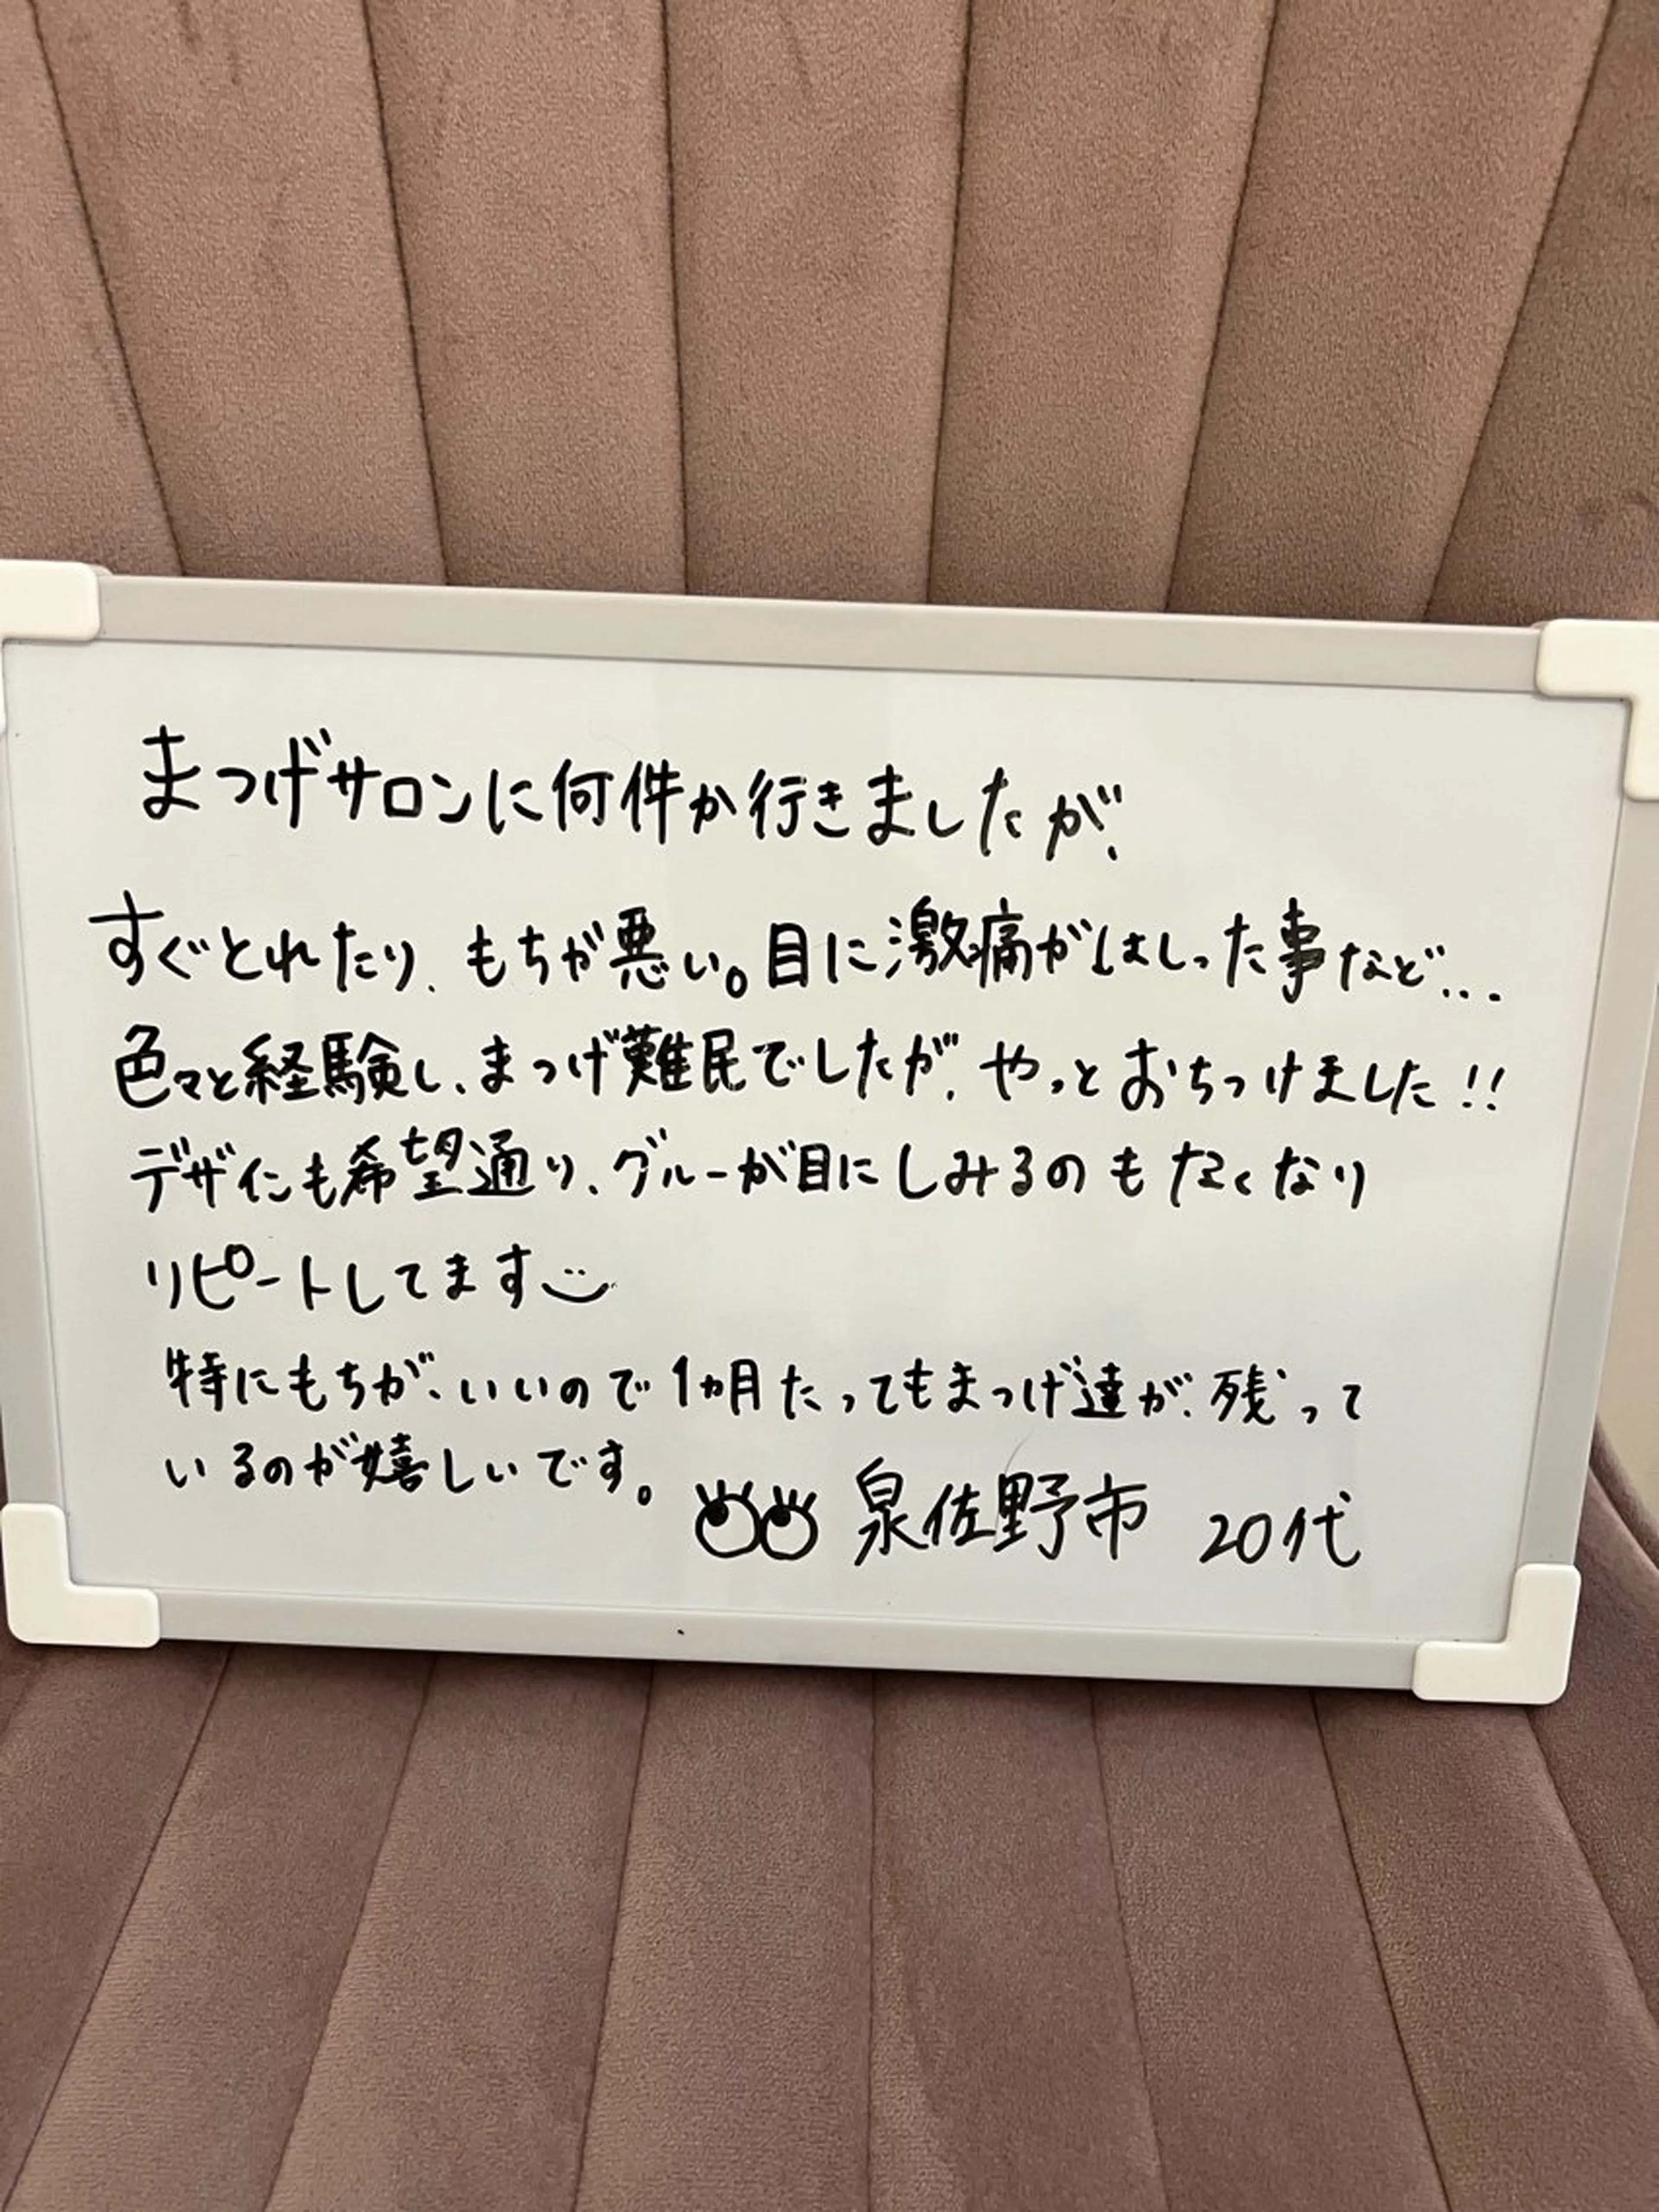 まつげサロンに何件か行きましたが、
すぐとれたり、もちが悪い。目に激痛がはしった事など...
色々と経験し、まつげ難民でしたが、やっとおちつけました!!
デザインも希望通り、グルーが目にしみるのもなくなり
リピートしてます
特にもちが、いいので1ヵ月たってもまつげ達が、残って
いるのが嬉しいです。
泉佐野市 20代